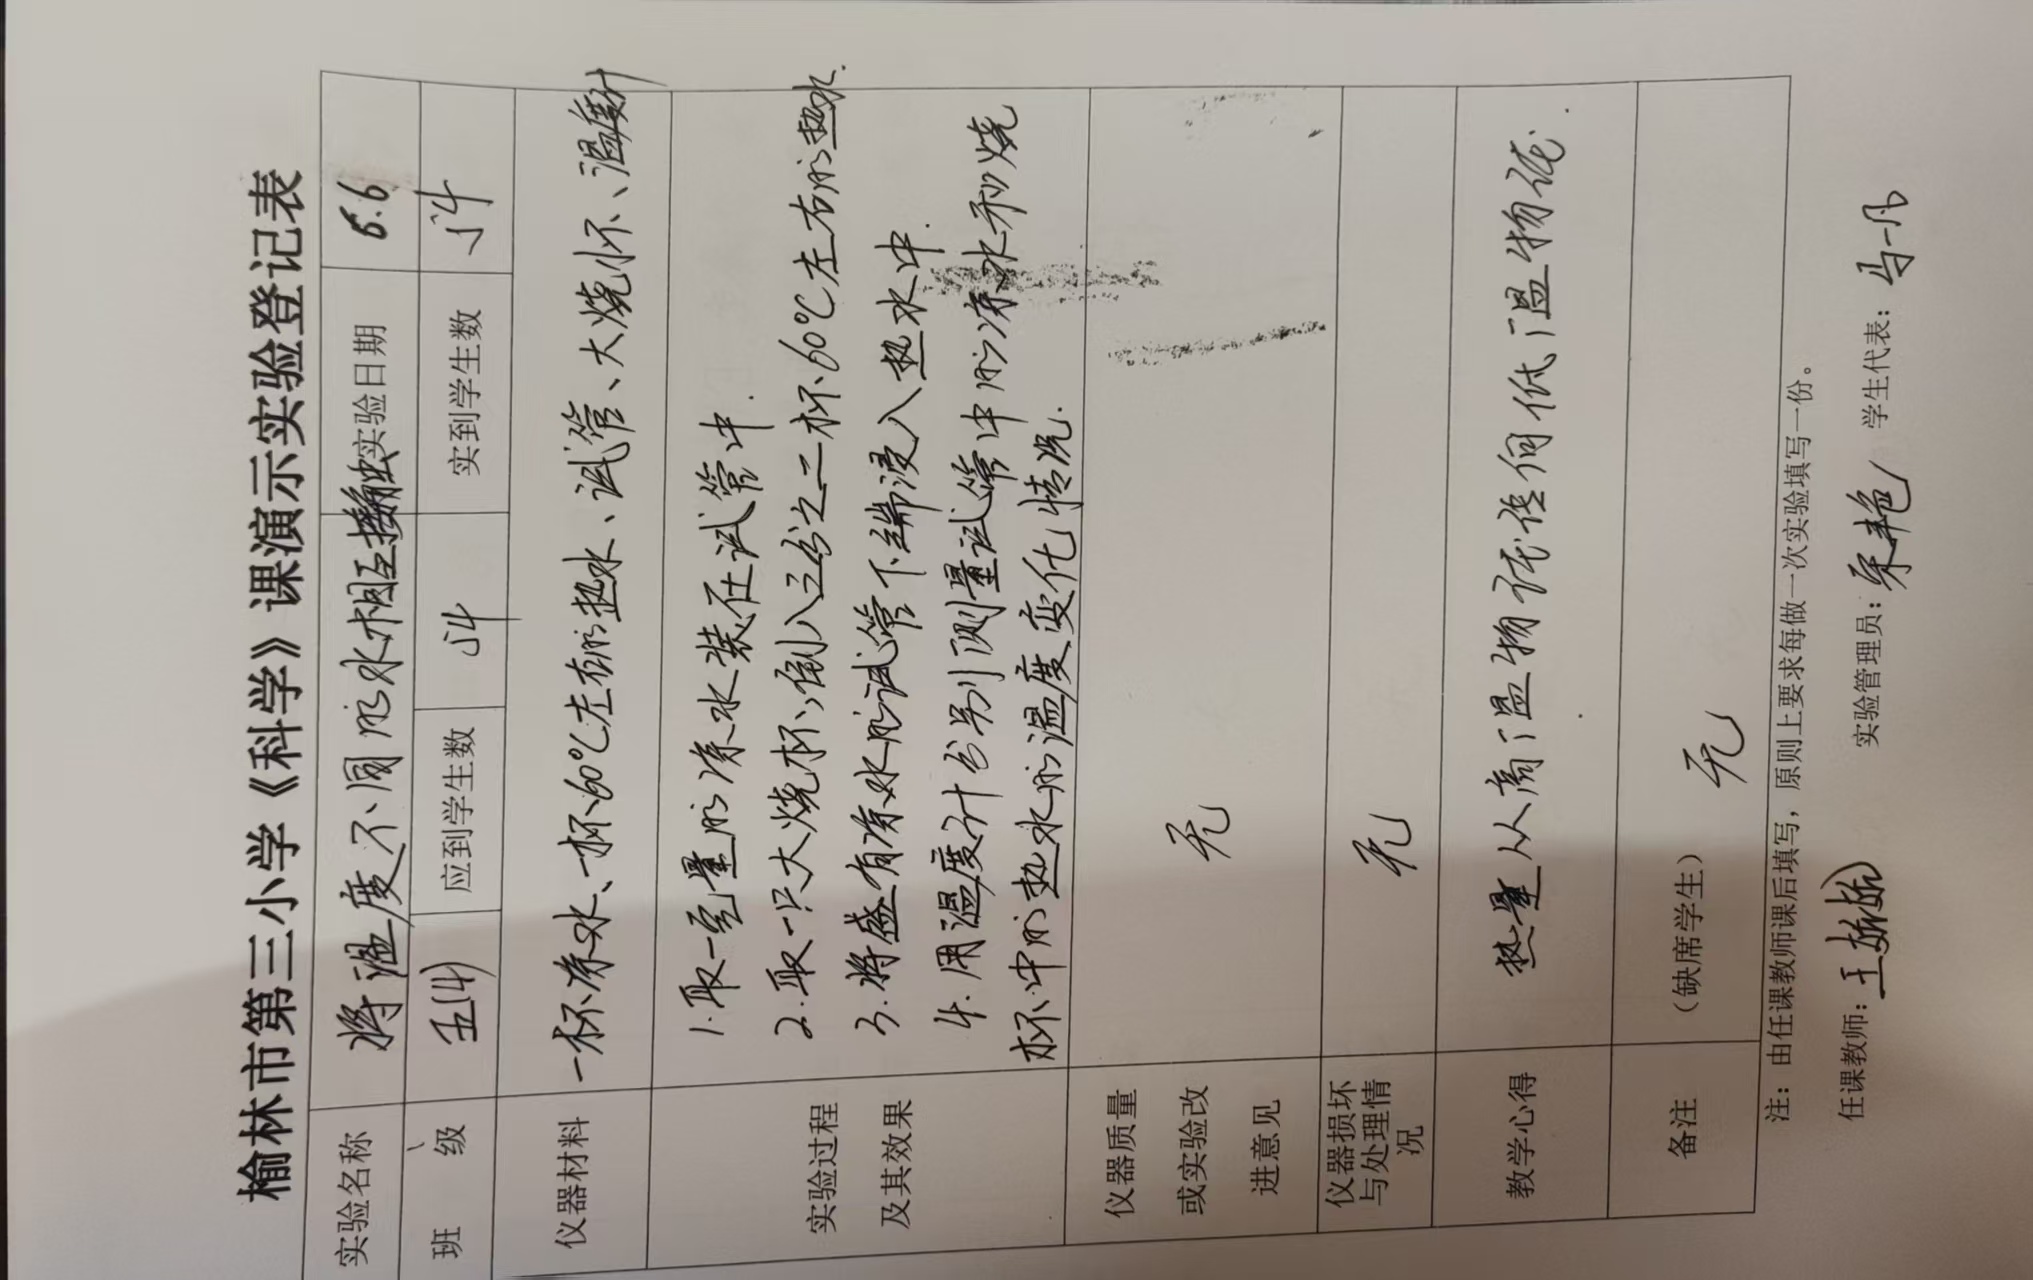 榆林市第三小学《科学》课演示实验登记表
实验名称 将温度不同的水相互接触 实验日期 6.6
班 级 五(4) 应到学生数 54 实到学生数 54
仪器材料 一杯凉水、一杯60℃左右的热水、试管、大烧杯、温度计
实验过程及其效果
1.取一定量的凉水装在试管中.
2.取一只大烧杯,倒入三分之二杯60℃左右的热水.
3.将盛有凉水的试管下端浸入热水中.
4.用温度计分别测量试管中的凉水和烧
杯中的热水的温度变化情况.
仪器质量
或实验改
进意见
无
仪器损坏
与处理情
况
无
教学心得 热量从高温物体传向低温物体.
备注 (缺席学生) 无
注:由任课教师课后填写,原则上要求每做一次实验填写一份。
任课教师: 实验管理员: 学生代表:马一凡